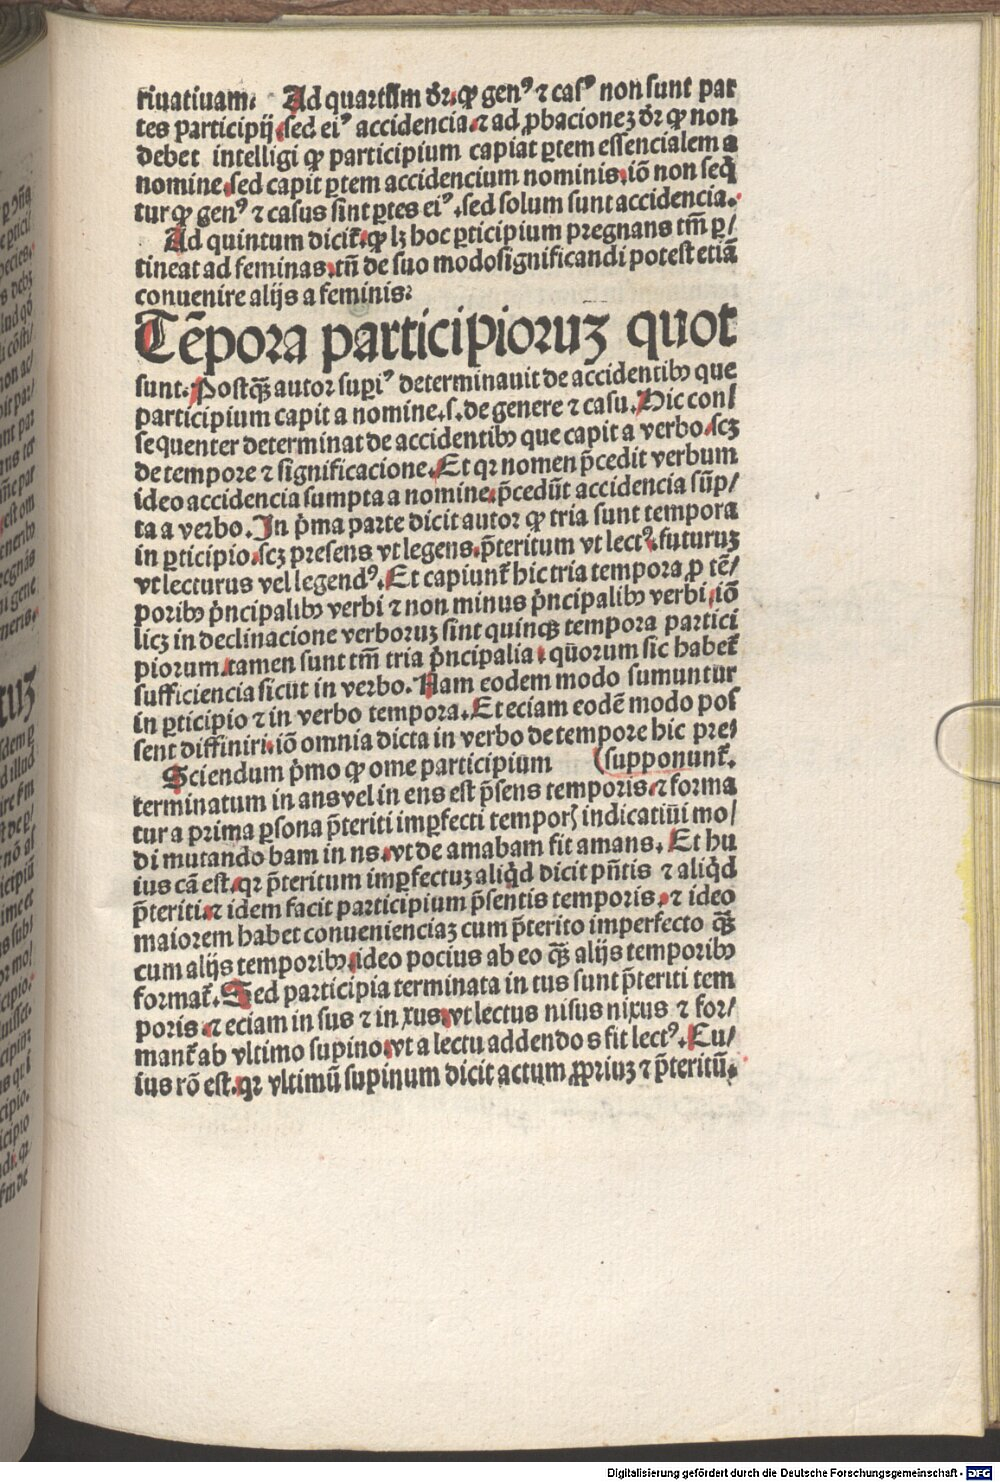 riuatiuam. Ad quartum dr̄. ꝙ genꝰ ⁊ casꝰ non sunt par
tes participij sed eiꝰ accidencia. ⁊ ad ꝓbacionez dr̄ ꝙ non
debet intelligi ꝙ participium capiat ꝑtem essencialem a
nomine. sed capit ꝑtem accidencium nominis. iō non seq̄
tur ꝙ genꝰ ⁊ casus sint ꝑtes eiꝰ. sed solum sunt accidencia.
Ad quintum dicit̄. ꝙ lꝫ hoc ꝑticipium pregnans tm̄ ꝑ/
tineat ad feminas. tn̄ de suo modo significandi potest etiā
conuenire alijs a feminis.
Tēpora participioruꝫ quot
sunt. Postqꝫ̄ autor supiꝰ determinauit de accidentibꝫ que
participium capit a nomine. s. de genere ⁊ casu. Hic con/
sequenter determinat de accidentibꝫ que capit a verbo. scꝫ
de tempore ⁊ significacione. Et qꝛ nomen p̄cedit verbum
ideo accidencia sumpta a nomine. p̄cedūt accidencia sūp/
ta a verbo. In p̓ma parte dicit autor ꝙ tria sunt tempora
in ꝑticipio. scꝫ presens vt legens. p̄teritum vt lectꝰ. futuruꝫ
vt lecturus vel legendꝰ. Et capiunt̄ hic tria tempora ꝓ tē/
poribꝫ p̓ncipalibꝫ verbi ⁊ non minus p̓ncipalibꝫ verbi. iō
licꝫ in declinacione verboruꝫ sint quinqꝫ tempora partici
piorum. tamen sunt tm̄ tria p̓ncipalia. quorum sic habet̄
sufficiencia sicut in verbo. Nam eodem modo sumuntur
in ꝑticipio ⁊ in verbo tempora. Et eciam eodē modo pos
sent diffiniri. iō omnia dicta in verbo de tempore hic pre/
Sciendum p̓mo ꝙ ome participium (supponunt̄.
terminatum in ans vel in ens est p̄sens temporis. ⁊ forma
tur a prima ꝑsona p̄teriti imꝑfecti tempoꝝ indicatiui mo/
di mutando bam in ns. vt de amabam fit amans. Et hu
ius cā est. qꝛ p̄teritum imꝑfectuꝫ aliq̓d dicit pn̄tis ⁊ aliq̓d
p̄teriti. ⁊ idem facit participium p̄sentis temporis. ⁊ ideo
maiorem habet conuenienciaꝫ cum p̄terito imperfecto qꝫ̄
cum alijs temporibꝫ. ideo pocius ab eo qꝫ̄ alijs temporibꝫ
format̄. Sed participia terminata in tus sunt p̄teriti tem
poris. ⁊ eciam in sus ⁊ in xus. vt lectus nisus nixus ⁊ for/
mant̄ ab vltimo supino. vt a lectu addendo s fit lectꝰ. Cu/
ius rō est. qꝛ vltimū supinum dicit actum ꝓpriuꝫ ⁊ p̄teritū.
Digitalisierung gefördert durch die Deutsche Forschungsgemeinschaft - DFG